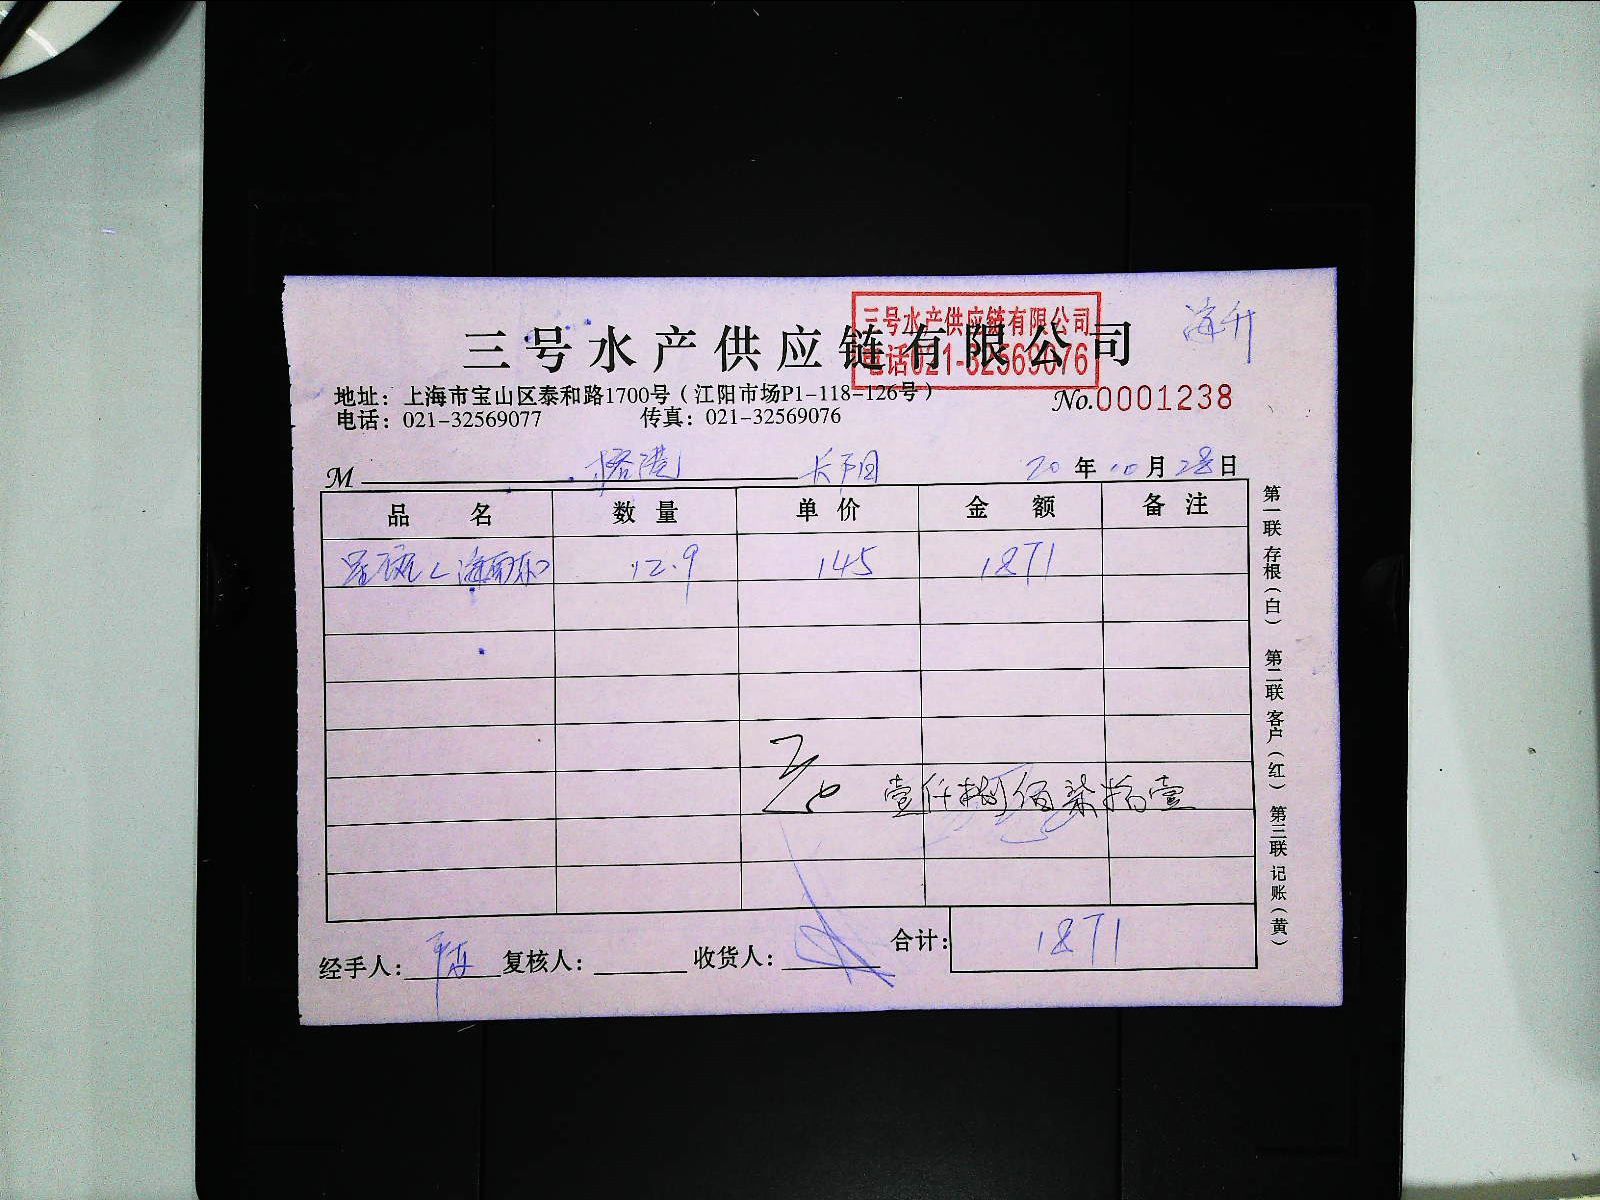 三号水产供应链有限公司
三号水产供应链有限公司
电话021-32569076
海升
地址：上海市宝山区泰和路1700号（江阳市场P1-118-126号）
No.0001238
电话：021-32569077 传真：021-32569076
M 港 长阳 20年10月28日
品名 数量 单价 金额 备注
星斑（海南东） 12.9 145 1871
壹仟捌佰柒拾壹
经手人： 复核人： 收货人： 合计： 1871
第一联 存根（白） 第二联 客户（红） 第三联 记账（黄）